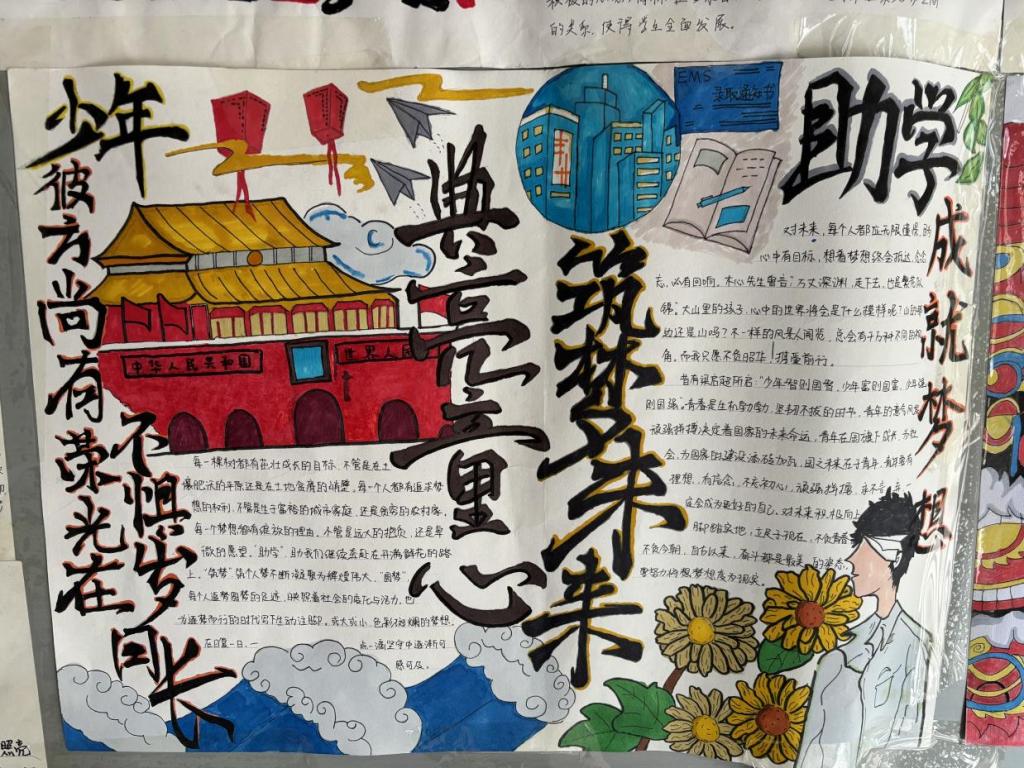 的关系,使得学生全面发展。
少年
彼方尚有荣光在
不惧岁日长
中华人民共和国
世界人民
每一棵树都有茁壮成长的目标,不管是在土
壤肥沃的平原还是在土地贫瘠的峭壁,每一个人都有追求梦
想的权利,不管是生于富裕的城市家庭,还是贫穷的农村
每一个梦想都有绽放的理由,不管是远大的抱负,还是卑
微的愿望。"助学",助我们继续奔赴在开满鲜花的路
上。"筑梦",筑个人梦不断凝聚为辉煌伟大。"圆梦",
每个人追梦圆梦的足迹,映照着社会的
为追梦前行的时代写下生动注脚。或大或小、色彩斑斓的梦想,
在日复一日、一
点一滴坚守中逐渐可
感可及。
典亮童心
筑梦未来
EMS
录取通知书
助学
成就梦想
对未来,每个人都应无限憧憬,
心中有目标,想着梦想终会抵达,念念不
忘,必有回响。木心先生曾言:"万丈深渊,走下去,也是繁花似
锦。"大山里的孩子,心中的世界将会是什么模样呢?山的那
边还是山吗?不一样的风景人间览,总会有千万种不同的视
角。而我只愿不负韶华,拥梦前行。
昔有梁启超所言:"少年智则国智,少年富则国富,少年强
则国强。"青春是生机勃勃、坚韧不拔的时节,青年的
顽强拼搏决定着国家的未来命运,青年在国旗下成长,为社
会、为国家的建设添砖加瓦,国之未来在于青年,
理想、有信念,不忘初心,顽强拼搏,永不言弃,
定会成为更好的自己。对未来积极向上
脚踏实地,立足于现在,不负青春
不负今朝,自即日以来,奋斗都是最美的姿态,
要努力将想梦想变为现实。